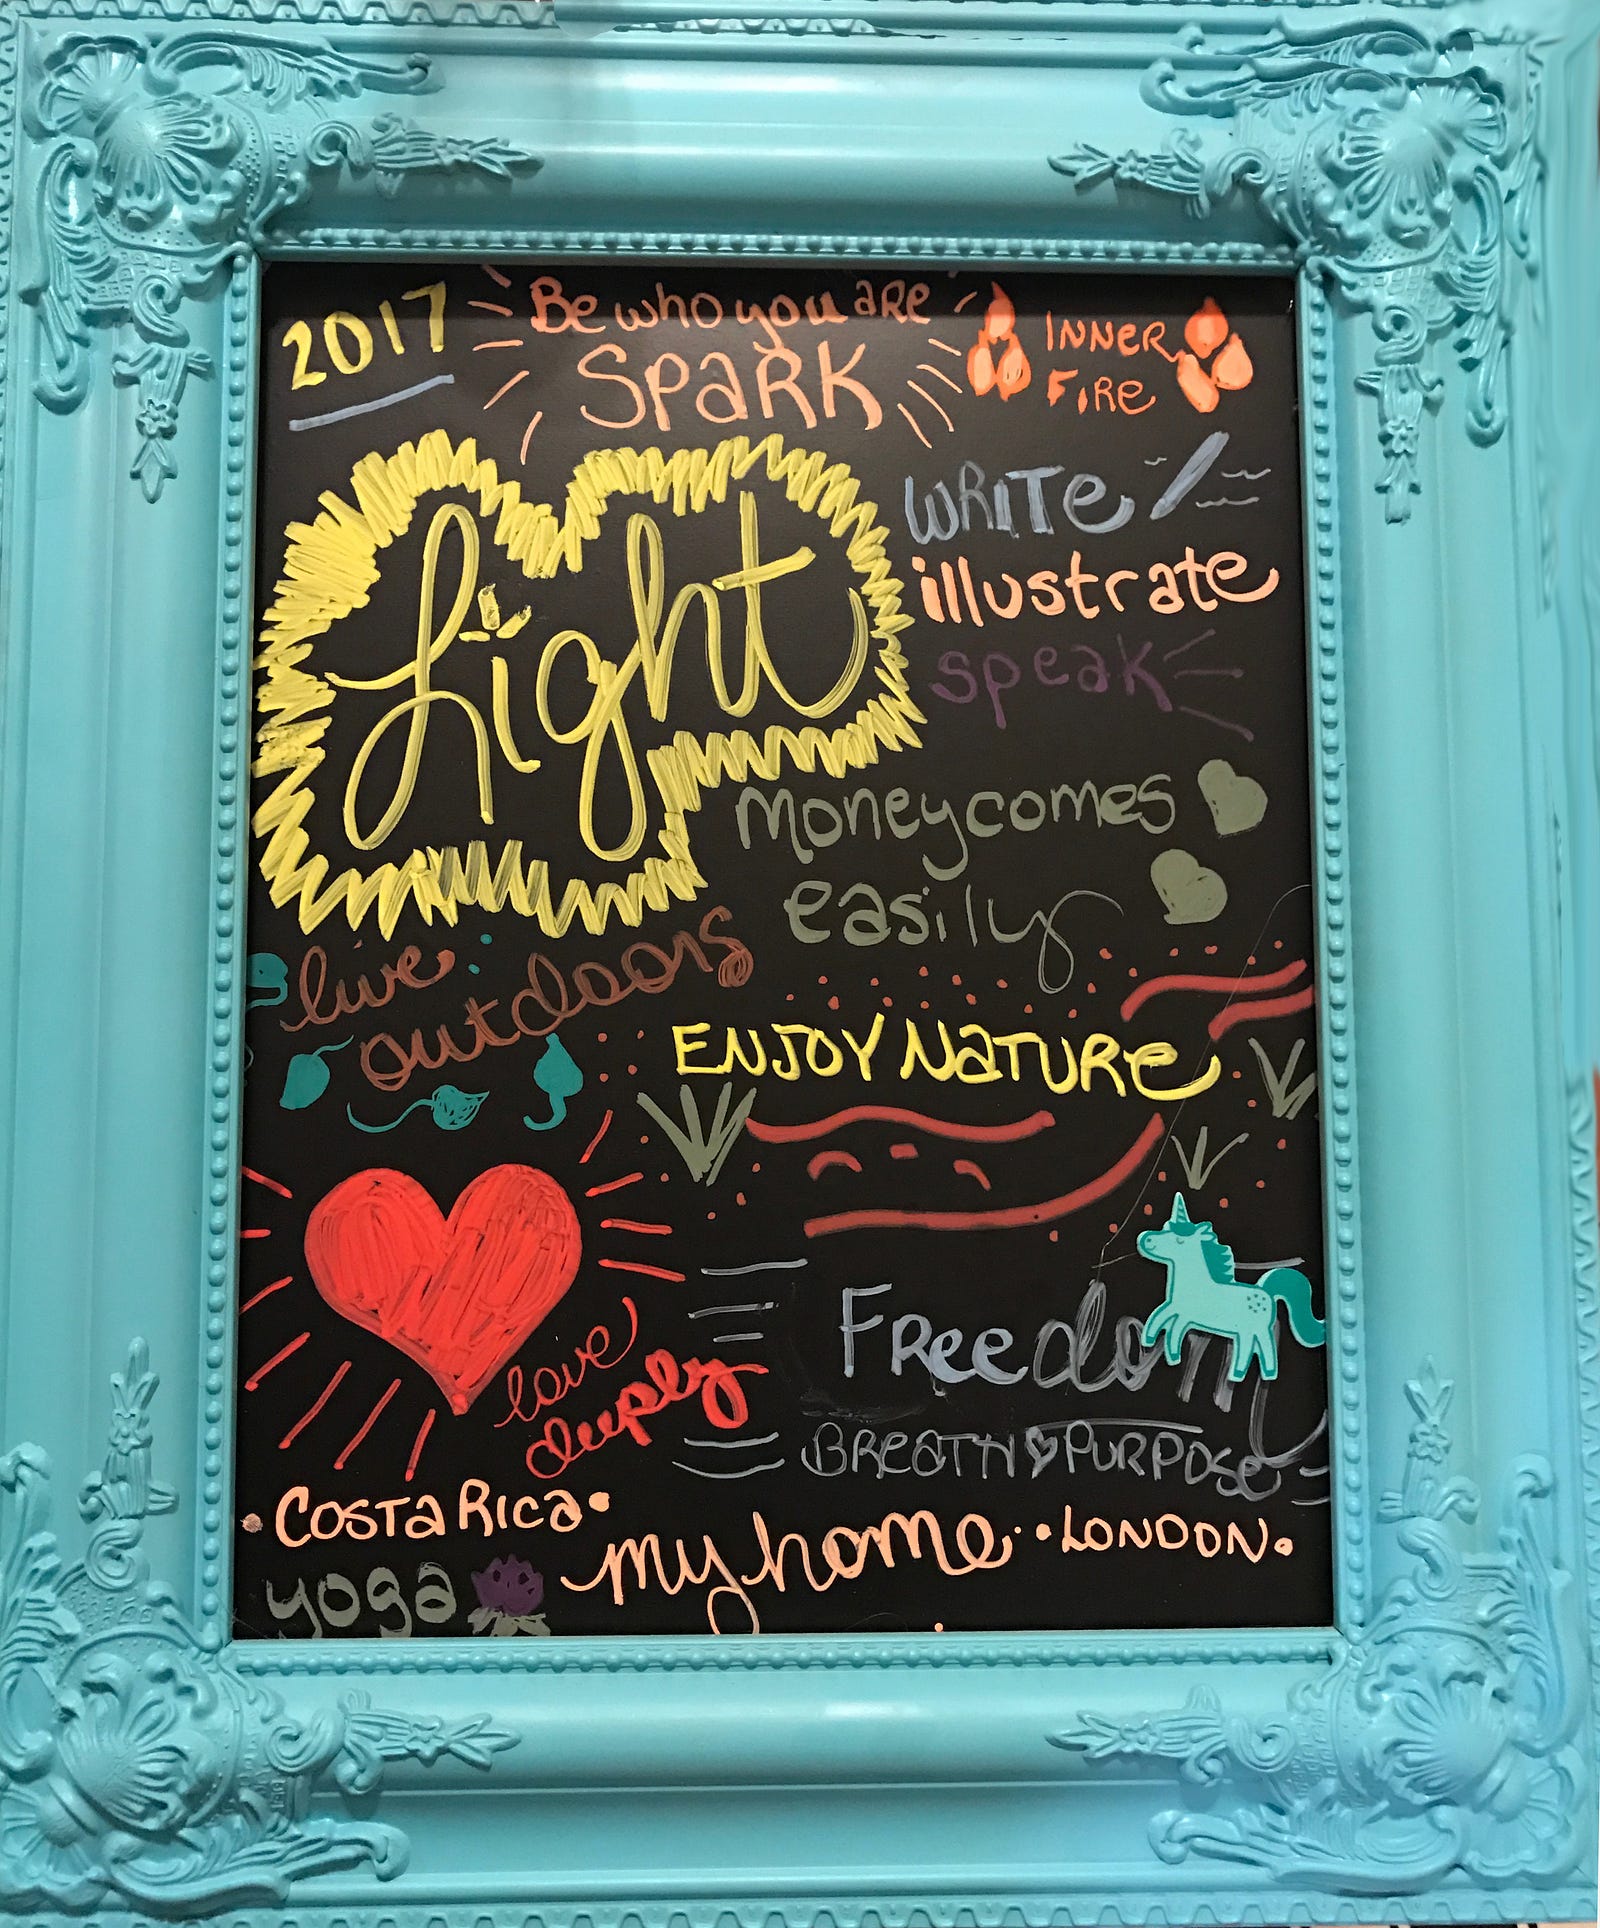 2017
Be who you are
SPARK
INNER
FIRE
Light
WRITE
illustrate
speak
Money comes
easily
live
outdoors
ENJOY NATURE
love
deeply
Freedom
BREATH PURPOSE
COSTA RICA
my home
LONDON
yoga